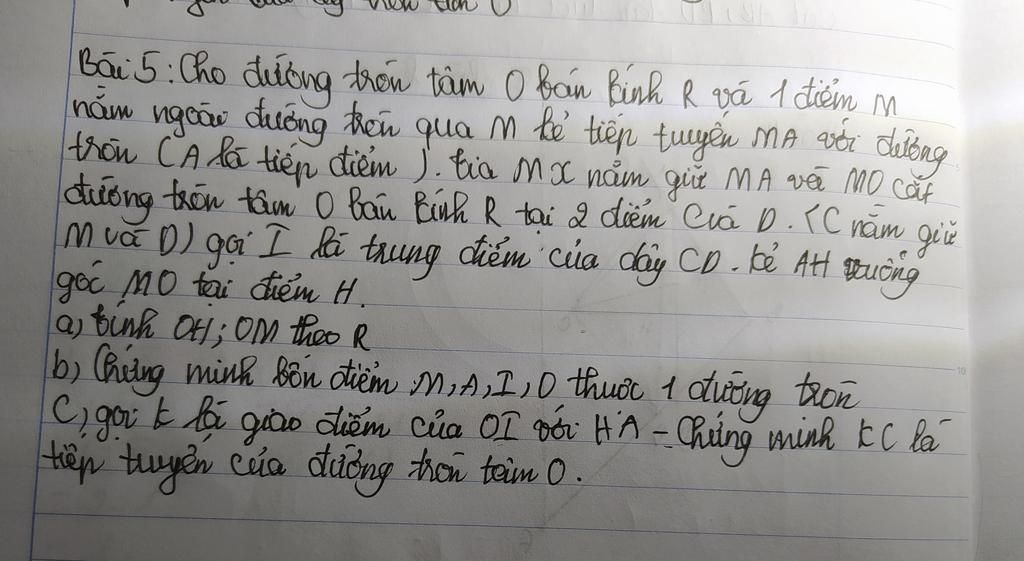 Bài 5: Cho đường tròn tâm O bán kính R và 1 điểm M
nằm ngoài đường tròn qua M kẻ tiếp tuyến MA với đường
tròn (A là tiếp điểm). tia MX nằm giữ MA và MO cắt
đường tròn tâm O bán kính R tại 2 điểm C và D. (C nằm giữ
M và D) gọi I là trung điểm của dây CD. kẻ AH vuông
góc MO tại điểm H.
a) tính OH; OM theo R
b) Chứng minh bốn điểm M, A, I, O thuộc 1 đường tròn
C) gọi K là giao điểm của OI với HA - Chứng minh KC là
tiếp tuyến của đường tròn tâm O.